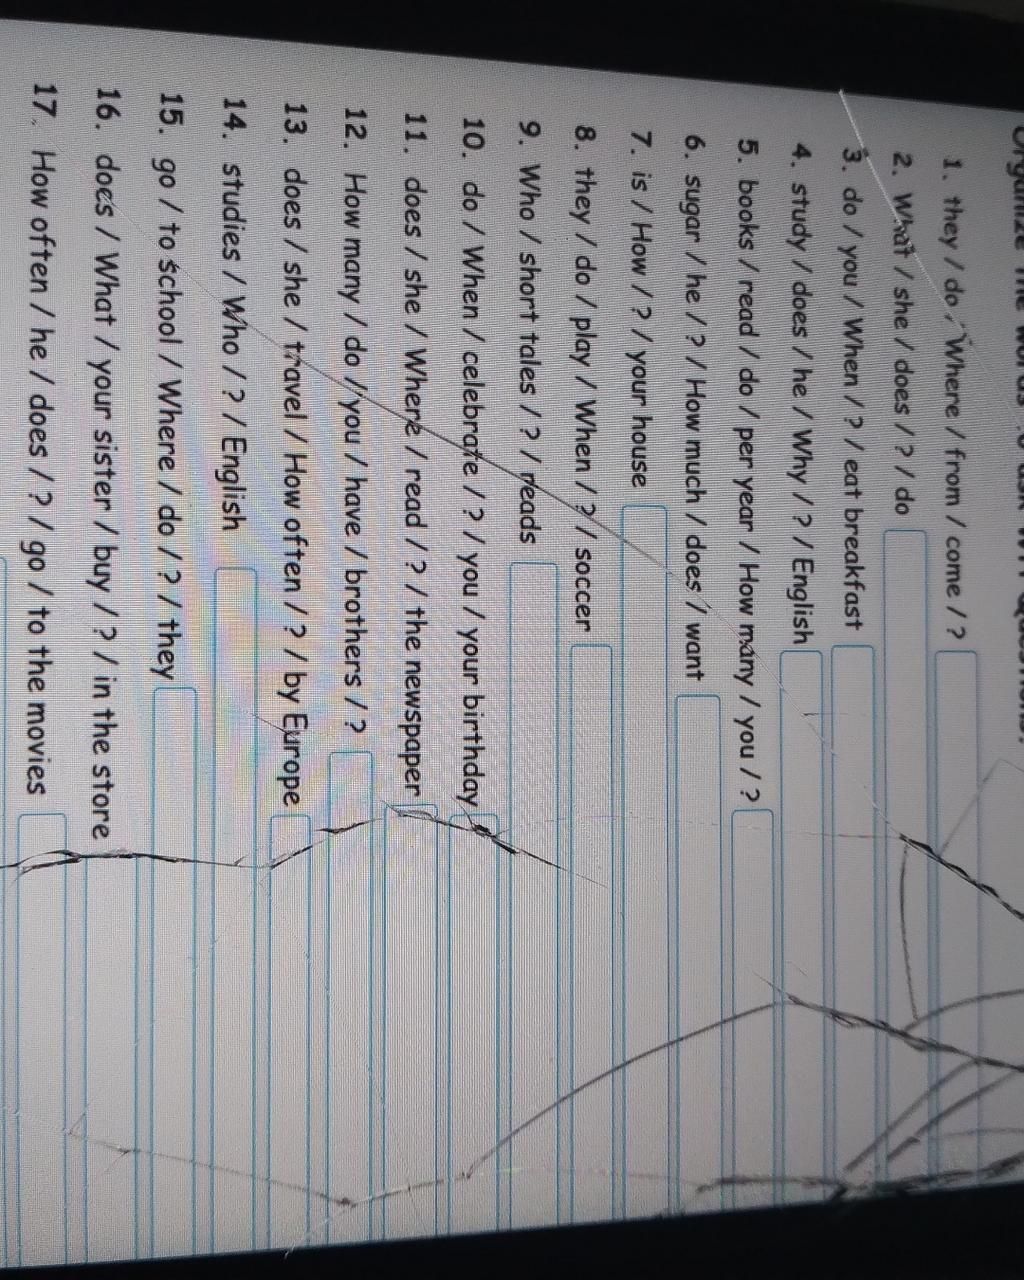 Organize the words to ask WH Questions.
1. they / do / Where / from / come / ?
2. What / she / does / ? / do
3. do / you / When / ? / eat breakfast
4. study / does / he / Why / ? / English
5. books / read / do / per year / How many / you / ?
6. sugar / he / ? / How much / does / want
7. is / How / ? / your house
8. they / do / play / When / ? / soccer
9. Who / short tales / ? / reads
10. do / When / celebrate / ? / you / your birthday
11. does / she / Where / read / ? / the newspaper
12. How many / do / you / have / brothers / ?
13. does / she / travel / How often / ? / by Europe
14. studies / Who / ? / English
15. go / to school / Where / do / ? / they
16. does / What / your sister / buy / ? / in the store
17. How often / he / does / ? / go / to the movies